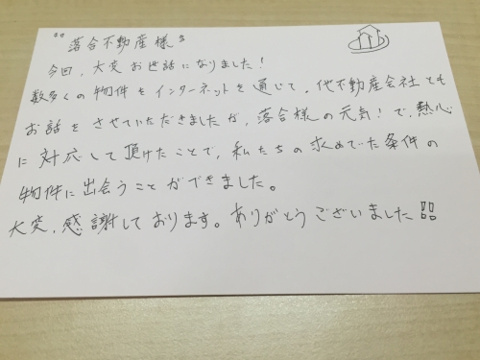 落合不動産様
今回、大変お世話になりました!
数多くの物件をインターネットを通じて、他不動産会社とも
お話をさせていただきましたが、落合様の元気!で、熱心
に対応して頂けたことで、私たちの求めてた条件の
物件に出会うことができました。
大変、感謝しております。ありがとうございました!!